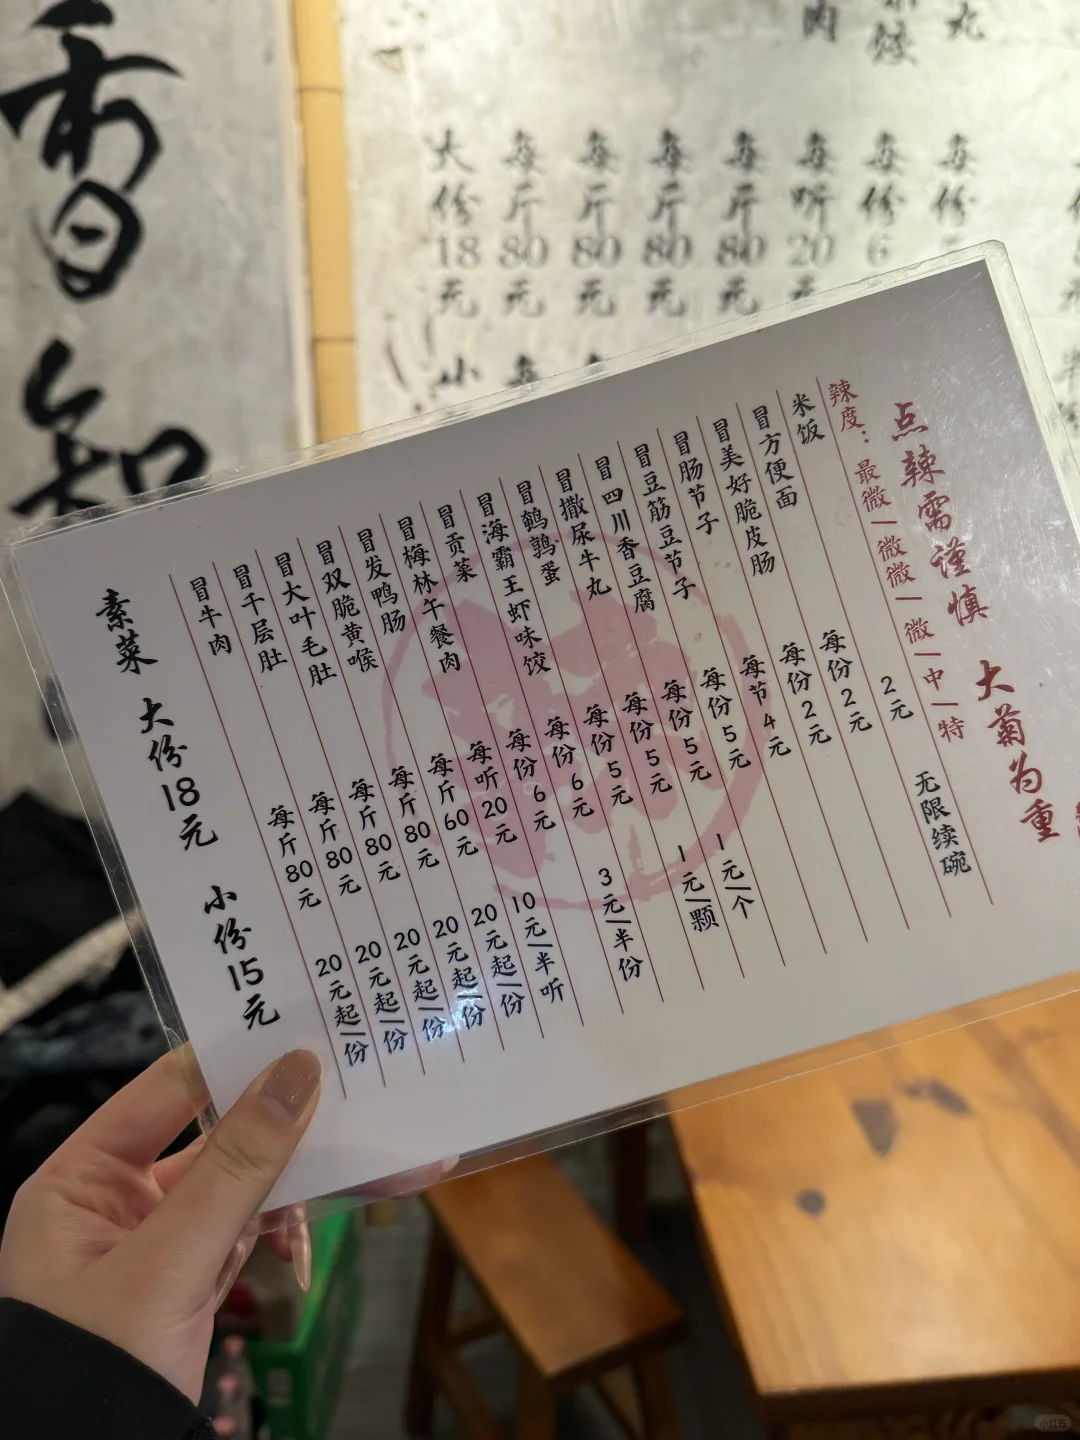 香知
丸
饺
肉
每份
每份6
每听20元
每斤80元
每斤80元
每斤80元
每斤80元
大份18元 小
点辣需谨慎 大菊为重
辣度:最微|微微|微|中|特
米饭 2元 无限续碗
冒方便面 每份2元
冒美好脆皮肠 每份2元
冒肠节子 每节4元
冒豆筋豆节子 每份5元
冒四川香豆腐 每份5元 1元/个
冒撒尿牛丸 每份5元 1元/颗
冒鹌鹑蛋 每份5元
冒海霸王虾味饺 每份6元 3元/半份
冒贡菜 每份6元
冒梅林午餐肉 每听20元 10元/半听
冒发鸭肠 每斤60元 20元起/份
冒双脆黄喉 每斤80元 20元起/份
冒大叶毛肚 每斤80元 20元起/份
冒千层肚 每斤80元 20元起/份
冒牛肉 每斤80元 20元起/份
素菜 大份18元 小份15元
小红书